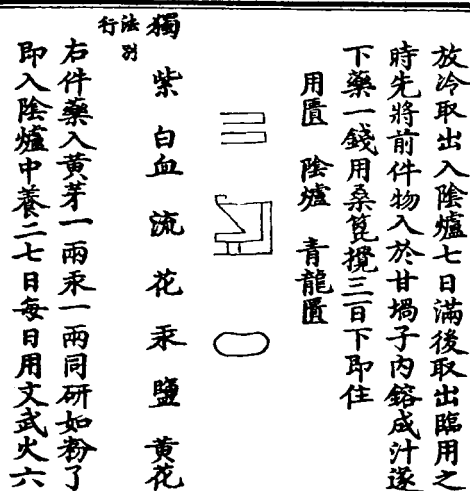 放冷取出入陰爐七日滿後取出臨用之
時先將前件物入於甘堝子內鎔成汁遂
下藥一錢用桑篦攪三百下即住
用匱 陰爐 青龍匱
獨紫白血流花汞鹽黃花
法別行
右件藥入黃芽一兩汞一兩同研如粉了
即入陰爐中養二七日每日用文武火六